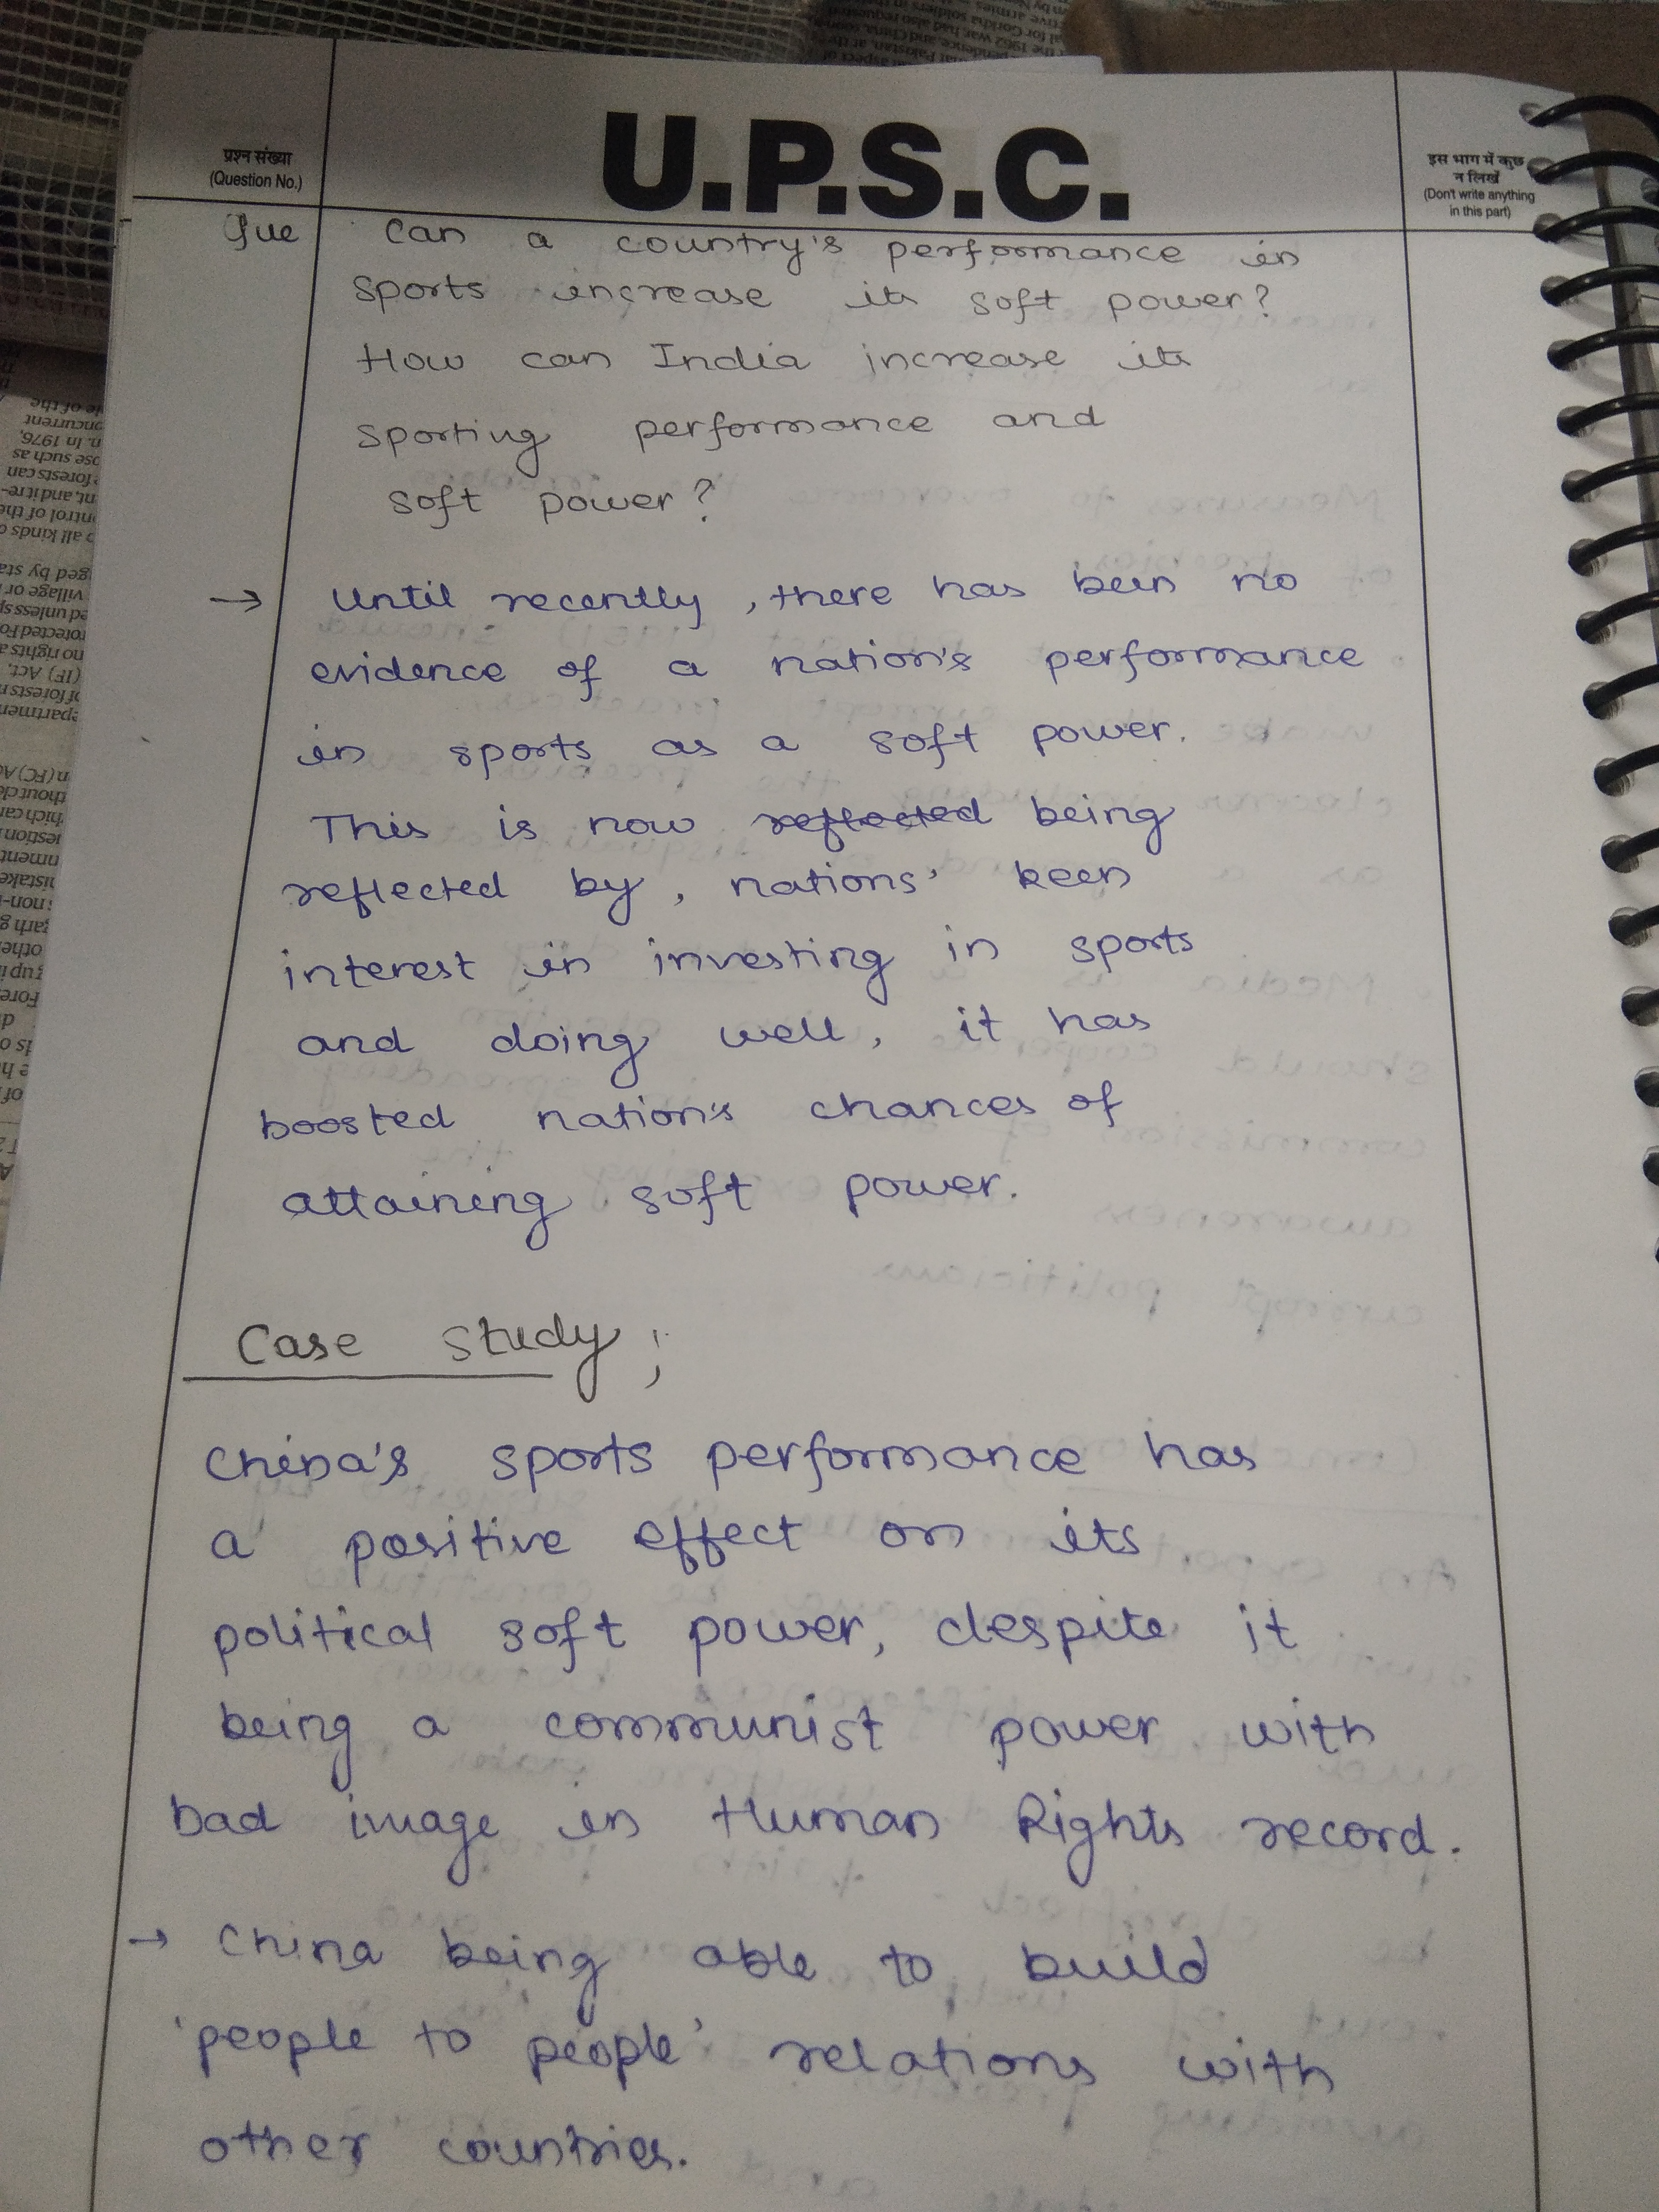 प्रश्न संख्या
(Question No.)
U.P.S.C.
इस भाग में कुछ
न लिखें
(Don't write anything
in this part)
Que Can a country's performance in
sports increase its soft power?
How can India increase its
sporting performance and
soft power?
→ Until recently, there has been no
evidence of a nation's performance
in sports as a soft power.
This is now reflected being
reflected by, nations' keen
interest in investing in sports
and doing well, it has
boosted nation's chances of
attaining soft power.
Case study;
China's sports performance has
a positive effect on its
political soft power, despite it
being a communist power with
bad image in Human Rights record.
→ China being able to build
'people to people' relations with
other countries.